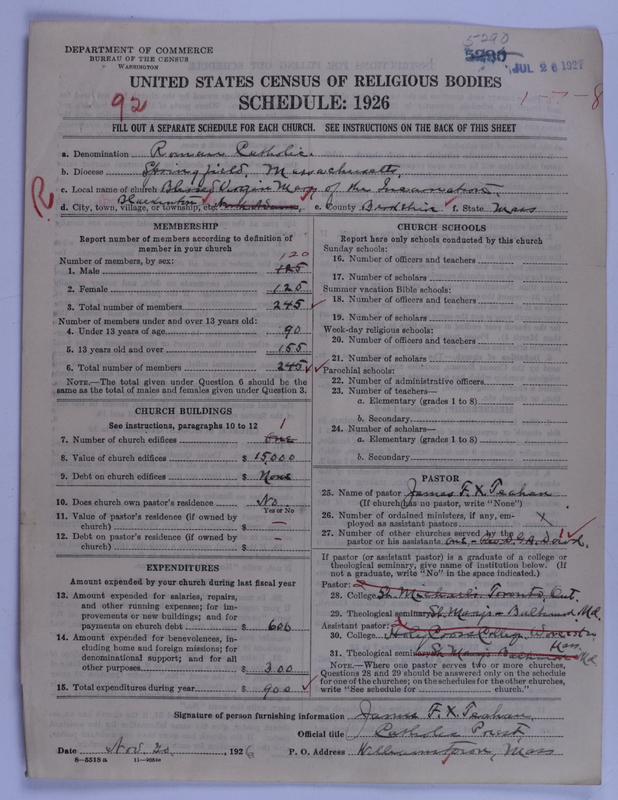 5290
5290
JUL 26 1927
DEPARTMENT OF COMMERCE
BUREAU OF THE CENSUS
WASHINGTON
UNITED STATES CENSUS OF RELIGIOUS BODIES
SCHEDULE: 1926
92
1-7-8
FILL OUT A SEPARATE SCHEDULE FOR EACH CHURCH. SEE INSTRUCTIONS ON THE BACK OF THIS SHEET
R
a. Denomination Roman Catholic.
b. Diocese Springfield, Massachusetts,
c. Local name of church Blessed Virgin Mary of the Incarnation.
Blackinton
d. City, town, village, or township, etc. North Adams, e. County Berkshire f. State Mass
MEMBERSHIP
Report number of members according to definition of
member in your church
Number of members, by sex:
120
1. Male 125
2. Female 125
3. Total number of members 245
Number of members under and over 13 years old:
4. Under 13 years of age 90
5. 13 years old and over 155
6. Total number of members 245
NOTE.—The total given under Question 6 should be the
same as the total of males and females given under Question 3.
CHURCH BUILDINGS
See instructions, paragraphs 10 to 12
1
7. Number of church edifices one
8. Value of church edifices $ 15000
9. Debt on church edifices $ None
10. Does church own pastor's residence No
Yes or No
11. Value of pastor's residence (if owned by
church) $ —
12. Debt on pastor's residence (if owned by
church) $ —
EXPENDITURES
Amount expended by your church during last fiscal year
13. Amount expended for salaries, repairs,
and other running expenses; for im-
provements or new buildings; and for
payments on church debt $ 600
14. Amount expended for benevolences, in-
cluding home and foreign missions; for
denominational support; and for all
other purposes $ 300
15. Total expenditures during year $ 900
CHURCH SCHOOLS
Report here only schools conducted by this church
Sunday schools:
16. Number of officers and teachers
17. Number of scholars
Summer vacation Bible schools:
18. Number of officers and teachers
19. Number of scholars
Week-day religious schools:
20. Number of officers and teachers
21. Number of scholars
Parochial schools:
22. Number of administrative officers
23. Number of teachers—
a. Elementary (grades 1 to 8)
b. Secondary
24. Number of scholars—
a. Elementary (grades 1 to 8)
b. Secondary
PASTOR
25. Name of pastor James F. X. Teahan
(If church has no pastor, write "None")
26. Number of ordained ministers, if any, em-
ployed as assistant pastors X
27. Number of other churches served by the 1
pastor or his assistants. one - Rev.
If pastor (or assistant pastor) is a graduate of a college or
theological seminary, give name of institution below. (If
not a graduate, write "No" in the space indicated.)
Pastor:
28. College St. Michael's Toronto, Ont.
29. Theological seminary St. Mary's - Baltimore, Md.
Assistant pastor:
30. College Holy Cross College, Worcester,
Mass.
31. Theological seminary St. Mary's Baltimore Md
NOTE.—Where one pastor serves two or more churches,
Questions 28 and 29 should be answered only on the schedule
for one of the churches; on the schedules for the other churches,
write "See schedule for ........ church."
Signature of person furnishing information James F. X. Teahan.
Official title Catholic Priest
Date Nov. 20, 1926 P. O. Address Williamstown, Mass
8—5518a 11—9085